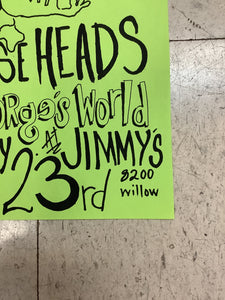 SE HEADS
orge's World
Y At JIMMY'S
23rd
8200
willow